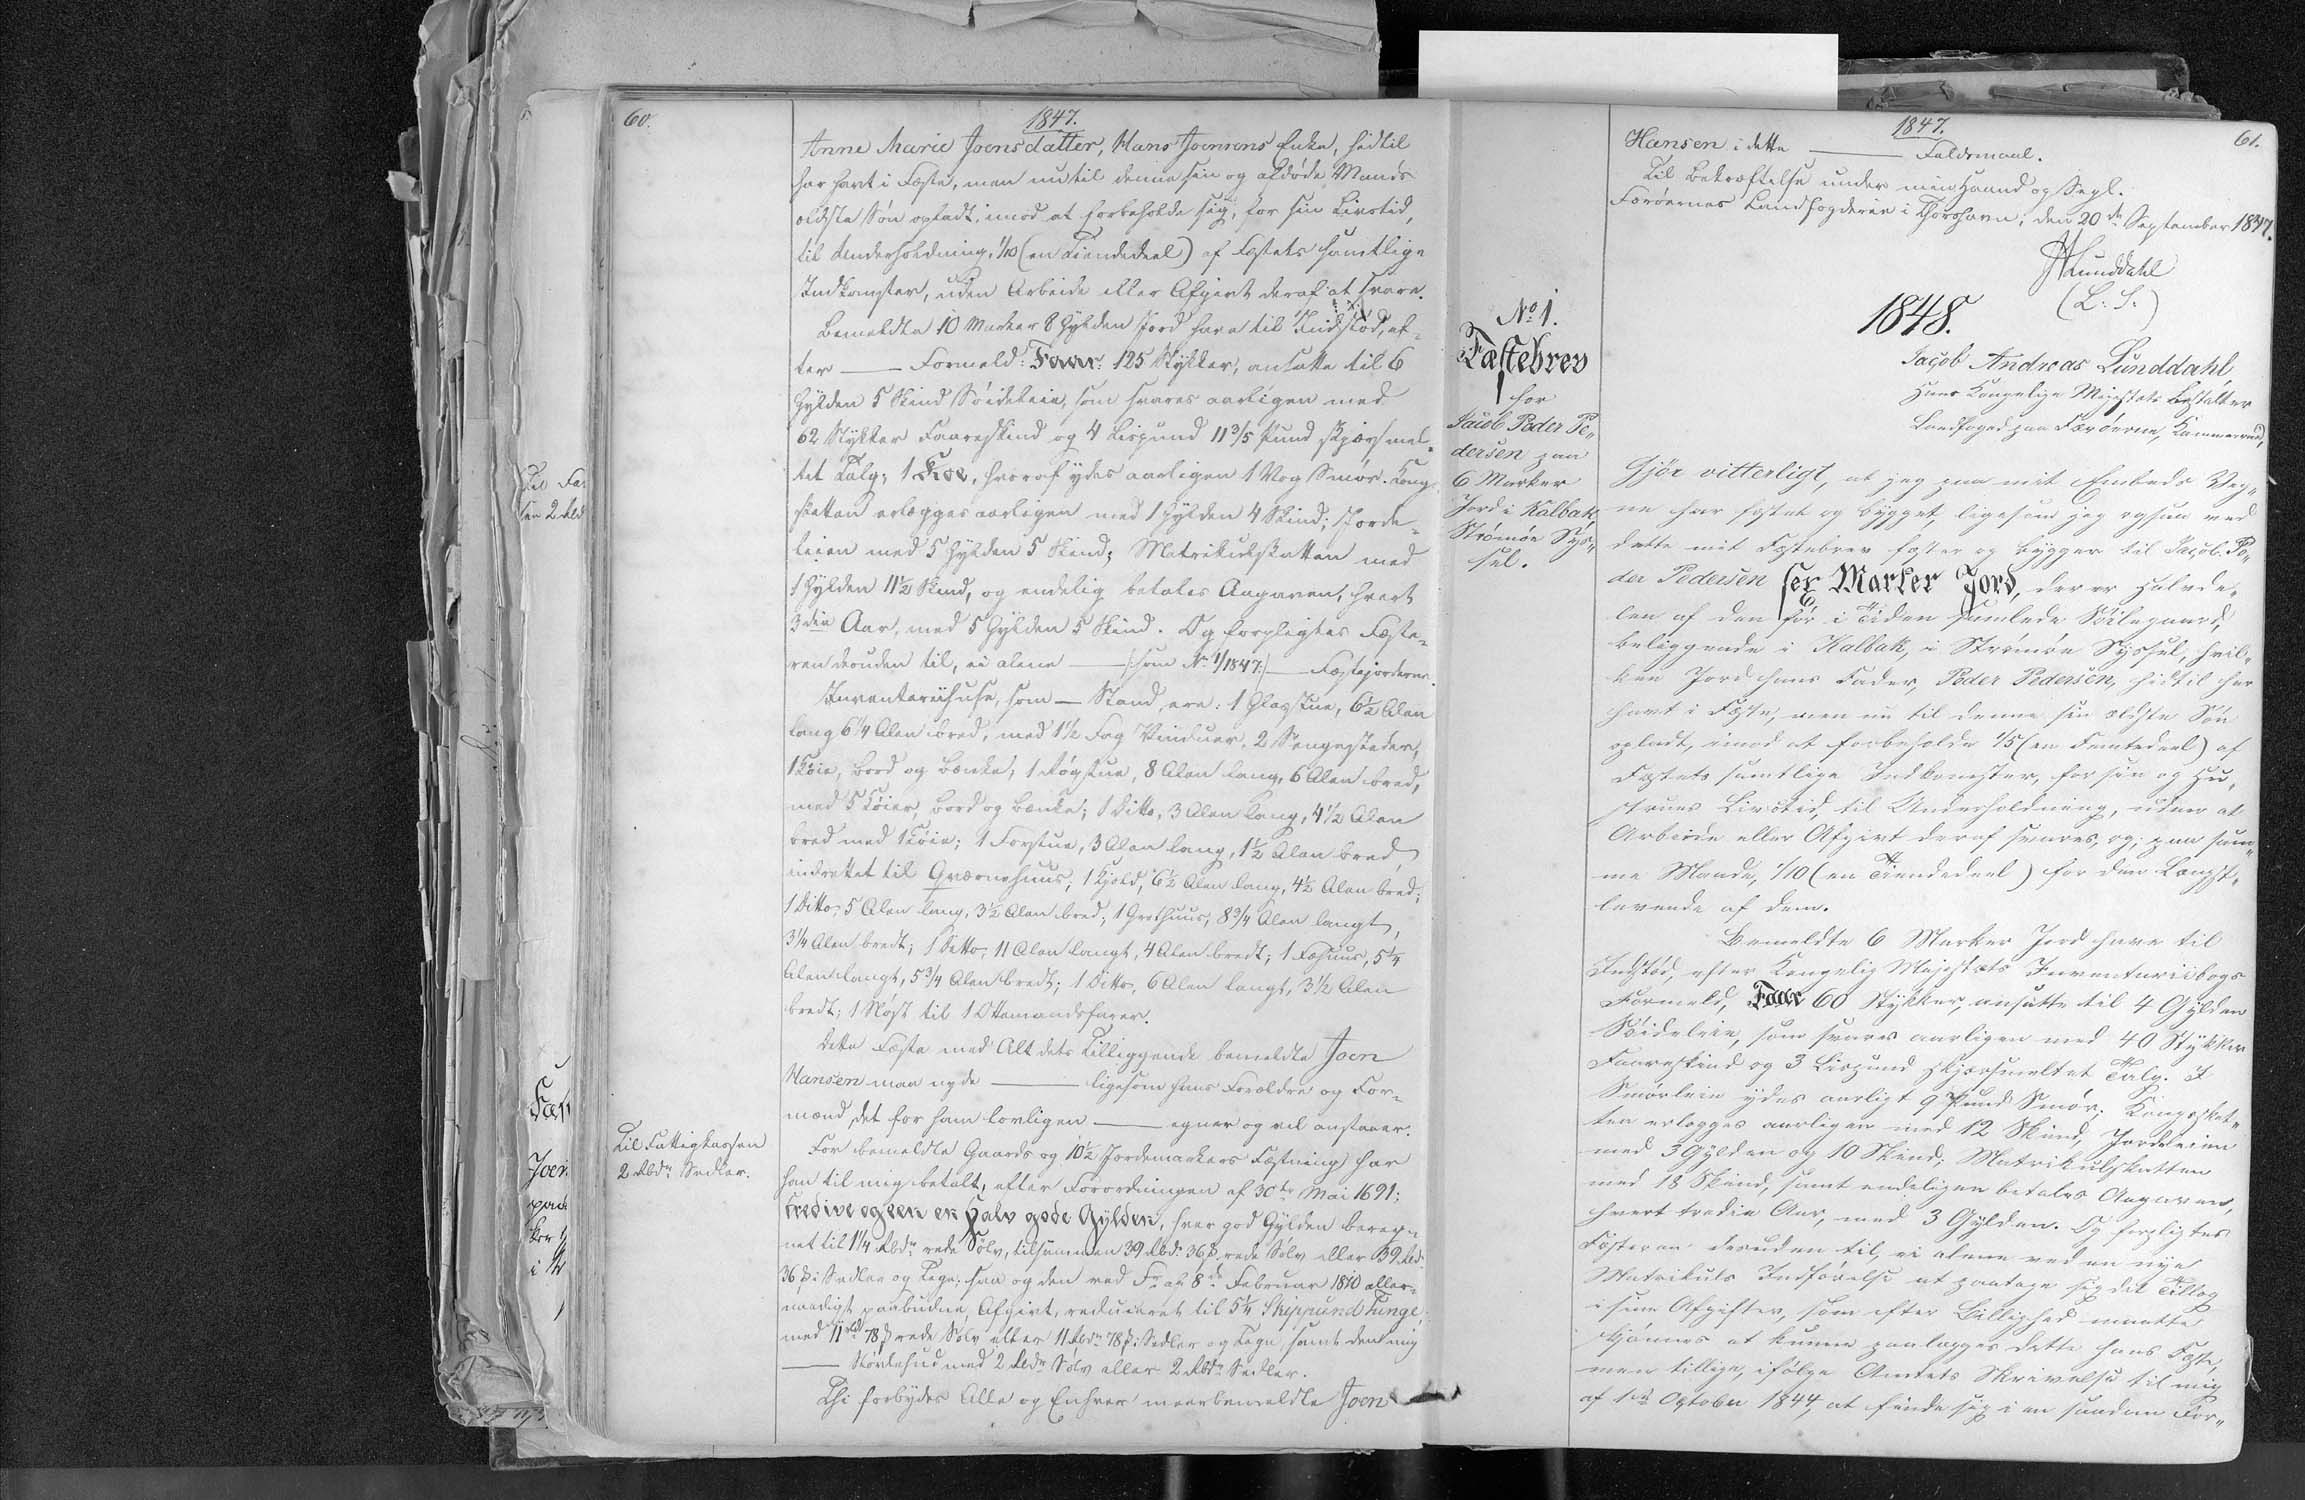 60.
1847.
Anne Marie Joensdatter, Hans Joensens Enke, hidtil
har havt i Fæste, men nu til denne sin og afdøde Mands
ældste Søn opladt, imod at forbeholde sig, for sin Livstid,
til Underholdning, 1/10 (en Tiendedeel) af Fæstets samtlige
Indkomster, uden Arbeide eller Afgivt deraf at svare.
Bemeldte 10 Marker 8 Gylden Jord have til Indstød, ef-
ter — Formeld: Faar: 125 Stykker, ansatte til 6
Gylden 5 Skind Söideleie, som svares aarligen med
62 Stykker Faareskind og 4 Lispund 11 3/5 Pund skjærsmel-
tet Talg; 1 Koe, hvoraf ydes aarligen 1 Vog Smør. Kong-
skatten erlægges aarligen med 1 Gylden 4 Skind; Jorde-
leien med 5 Gylden 5 Skind; Matrikulskatten med
1 Gylden 11½ Skind, og endelig betales Angaven, hvert
3die Aar, med 5 Gylden 5 Skind. Og forpligtes Fæste-
ren desuden til, ei alene — (: som No 1/1847 :) — Fæstejorderne.
Inventariihuse, som — Stand ere: 1 Glasstue, 6½ Alen
lang 6¼ Alen bred, med 1½ Fag Vinduer, 2 Sengesteder,
1 Köie, Bord og Bænke; 1 Røgstue, 8 Alen lang, 6 Alen bred,
med 5 Köier, Bord og Bænke; 1 Ditto, 3 Alen lang, 4½ Alen
bred med 1 Köie; 1 Forstue, 3 Alen lang, 1½ Alen bred
indrettet til Qværnehuus; 1 Hjold, 6½ Alen lang, 4½ Alen bred;
1 Ditto, 5 Alen lang, 3½ Alen bred; 1 Grothuus, 8¾ Alen langt,
3¼ Alen bredt; 1 Ditto, 11 Alen langt, 4 Alen bredt; 1 Fæhuus, 5¼
Alen langt, 5¾ Alen bredt; 1 Ditto, 6 Alen langt, 3½ Alen
bredt; 1 Nøst til 1 Ottemandsfarer.
Dette Fæste med Alt dets Tilliggende bemeldte Joen
Hansen maa nyde — ligesom hans Forældre og For-
mænd, det for ham lovligen — egner og vel anstaaer.
For bemeldte Gaards og 10½ Jordemarkers Fæstning har
han til mig betalt, efter Forordningen af 30te Mai 1691:
tredive og een en halv gode Gylden, hver god Gylden bereg-
net til 1¼ Rbdr rede Sølv, tilsammen 39 Rbd. 36 ß rede Sølv eller 39 Rbd.
36 ß i Sedler og Tegn; saa og den ved Fr. af 8de Februar 1810 aller-
naadigst paabudne Afgivt, reduceret til 5¼ Skippund Tunge
med 11 Rbd 78 ß rede Sølv eller 11 Rbdr 78 ß i Sedler og Tegn samt den mig
— Störkehud med 2 Rbdr Sølv eller 2 Rbdr Sedler.
Thi forbydes Alle og Enhver meerbemeldte Joen
Til Fattigkassen
2 Rbdr Sedler.
1847.
61.
Hansen i dette — Faldsmaal.
Til Bekræftelse under min Haand og Segl.
Færöernes Landfogderie i Thorshavn, den 20de September 1847.
Lunddahl
(L: S:)
1848.
No 1.
Fæstebrev
for
Jacob Peder Pe-
dersen paa
6 Marker
Jord i Kalbak
Strömöe Sys-
sel.
Jacob Andreas Lunddahl
Hans Kongelige Majestæts Bestalter
Landfoged paa Færöerne, Kammerraad,
Gjör vitterligt, at jeg paa mit Embeds Veg-
ne har fæstet og bygget, ligesom jeg ogsaa ved
dette mit Fæstebrev fæster og bygger til Jacob Pe-
der Pedersen sex Marker Jord, der er Halvde-
len af den før i Tiden samlede Völegaard,
beliggende i Kalbak, i Strömöe Syssel, hvil-
ken Jord hans Fader, Peder Pedersen, hidtil har
havt i Fæste, men nu til denne sin ældste Søn
opladt, imod at forbeholde 1/5 (en Femtedeel) af
Fæstets samtlige Indkomster, for sin og Hu-
struens Livstid, til Underholdning, uden at
Arbeide eller Afgivt deraf svares, og, paa sam-
me Maade, 1/10 (en Tiendedeel) for den Længst-
levende af dem.
Bemeldte 6 Marker Jord have til
Indstød, efter Kongelig Majestæts Inventariibogs
Formeld, Faar 60 Stykker, ansatte til 4 Gylden
Söideleie, som svares aarligen med 40 Stykker
Faareskind og 3 Lispund skjærsmeltet Talg. I
Smörleie ydes aarligt 9 Pund Smör; Kongsskat-
ten erlægges aarligen med 12 Skind, Jordeleien
med 3 Gylden og 10 Skind; Matrikulskatten
med 18 Skind, samt endeligen betales Angaven,
hvert tredie Aar, med 3 Gylden. Og forpligtes
Fæsteren desuden til, ei alene ved en nye
Matrikuls Indförelse at paatage sig det Tillæg
i sine Afgifter, som efter Billighed maatte
skjönnes at kunne paalægges dette hans Fæste,
men tillige, ifölge Amtets Skrivelse til mig
af 1ste October 1844, at finde sig i en saadan For-